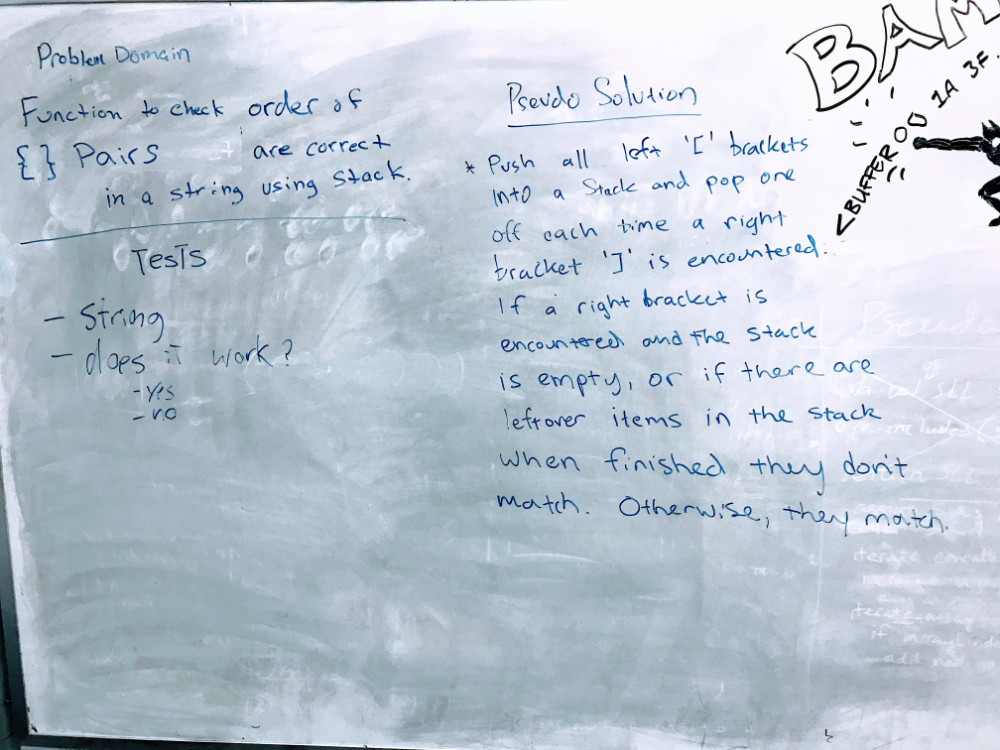 Problem Domain
Function to check order of
{ } Pairs are correct
in a string using Stack.
Tests
- String
- does it work?
- Yes
- no
Pseudo Solution
* Push all left '[' brackets
into a Stack and pop one
off each time a right
bracket ']' is encountered.
If a right bracket is
encountered and the stack
is empty, or if there are
leftover items in the stack
when finished they don't
match. Otherwise, they match.
BAM
<BUFFER 00 1A 3F.